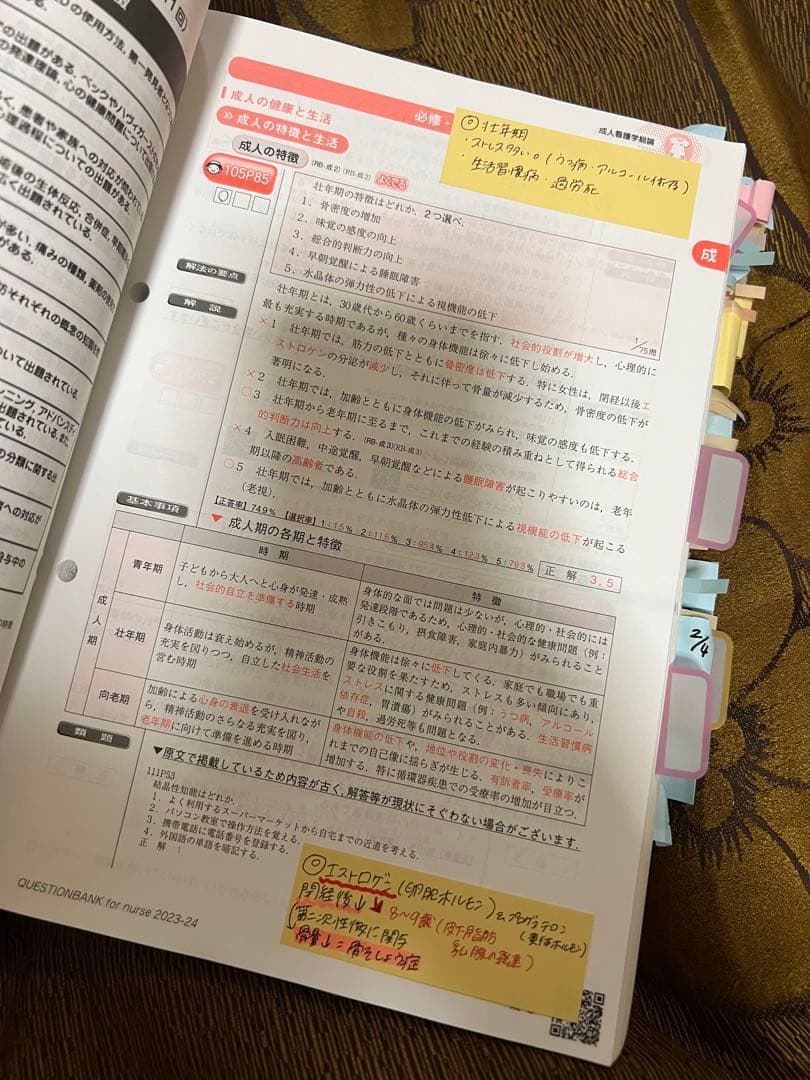 の使用方法，第一発見者
の出題がある．ベックやハヴィガースト
の発達理論，心の健康問題について
患者や家族への対応が問われ
心理過程についての出題があ
術後の生体反応，合併症，
広く出題されている．
が多い．痛みの種類，薬剤の
がある．
防それぞれの概念の知識を
ついて出題されている．
ンニング，アドバンスディ
の分類に関する出
者への対応が
成人の健康と生活
必修・
成人看護学総論
» 成人の特徴と生活
成人の特徴
(RB-成2)(RB-成2)
よくでる
◎壮年期
・ストレス多い。(うつ病・アルコール依存)
・生活習慣病・過労死
成
105P85
壮年期の特徴はどれか．2つ選べ．
1．骨密度の増加
2．味覚の感度の向上
3．総合的判断力の向上
4．早朝覚醒による睡眠障害
5．水晶体の弾力性の低下による視機能の低下
1/75周
解法の要点
壮年期とは，30歳代から60歳くらいまでを指す．社会的役割が増大し，心理的に
最も充実する時期であるが，種々の身体機能は徐々に低下し始める．
解説
×1 壮年期では，筋力の低下とともに骨密度は低下する．特に女性は，閉経以後エ
ストロゲンの分泌が減少し，それに伴って骨量が減少するため，骨密度の低下が
著明になる．
×2 壮年期では，加齢とともに身体機能の低下がみられ，味覚の感度も低下する．
○3 壮年期から老年期に至るまで，これまでの経験の積み重ねとして得られる総合
的判断力は向上する．(RB-成3)(RB-成3)
×4 入眠困難，中途覚醒，早朝覚醒などによる睡眠障害が起こりやすいのは，老年
期以降の高齢者である．
○5 壮年期では，加齢とともに水晶体の弾力性低下による視機能の低下が起こる
(老視)．
【正答率】74.9% 【選択率】1：1.5% 2：11.6% 3：95.4% 4：12.3% 5：79.3%
正解 3，5
基本事項
▼成人期の各期と特徴
時期
特徴
成人期
青年期
子どもから大人へと心身が発達・成熟
し，社会的自立を準備する時期
身体的な面では問題は少ないが，心理的・社会的には
発達段階であるため，心理的・社会的な健康問題（例：
引きこもり，摂食障害，家庭内暴力）がみられること
がある．
壮年期
身体活動は衰え始めるが，精神活動の
充実を図りつつ，自立した社会生活を
営む時期
身体機能は徐々に低下してくる．家庭でも職場でも重
要な役割を果たすため，ストレスも多い傾向にあり，
ストレスに関する健康問題（例：うつ病，アルコール
依存症，胃潰瘍）がみられることがある．生活習慣病
や自殺，過労死等も問題となる．
向老期
加齢による心身の衰退を受け入れなが
ら，精神活動のさらなる充実を図り，
老年期に向けて準備を進める時期
身体機能の低下や，地位や役割の変化・喪失によりこ
れまでの自己像に揺らぎが生じる．有訴者率，受療率が
増加する．特に循環器疾患での受療率の増加が目立つ．
2/4
類題
▼原文で掲載しているため内容が古く，解答等が現状にそぐわない場合がございます．
111P53
結晶性知能はどれか．
1．よく利用するスーパーマーケットから自宅までの近道を考える．
2．パソコン教室で操作方法を覚える．
3．携帯電話に電話番号を登録する．
4．外国語の単語を暗記する．
正解 1
◎エストロゲン(卵胞ホルモン)&プロゲステロン
(黄体ホルモン)
閉経後↓
8〜9歳(皮下脂肪
乳腺の発達)
(第二次性徴に関与
骨量↓=骨そしょう症
QUESTIONBANK for nurse 2023-24